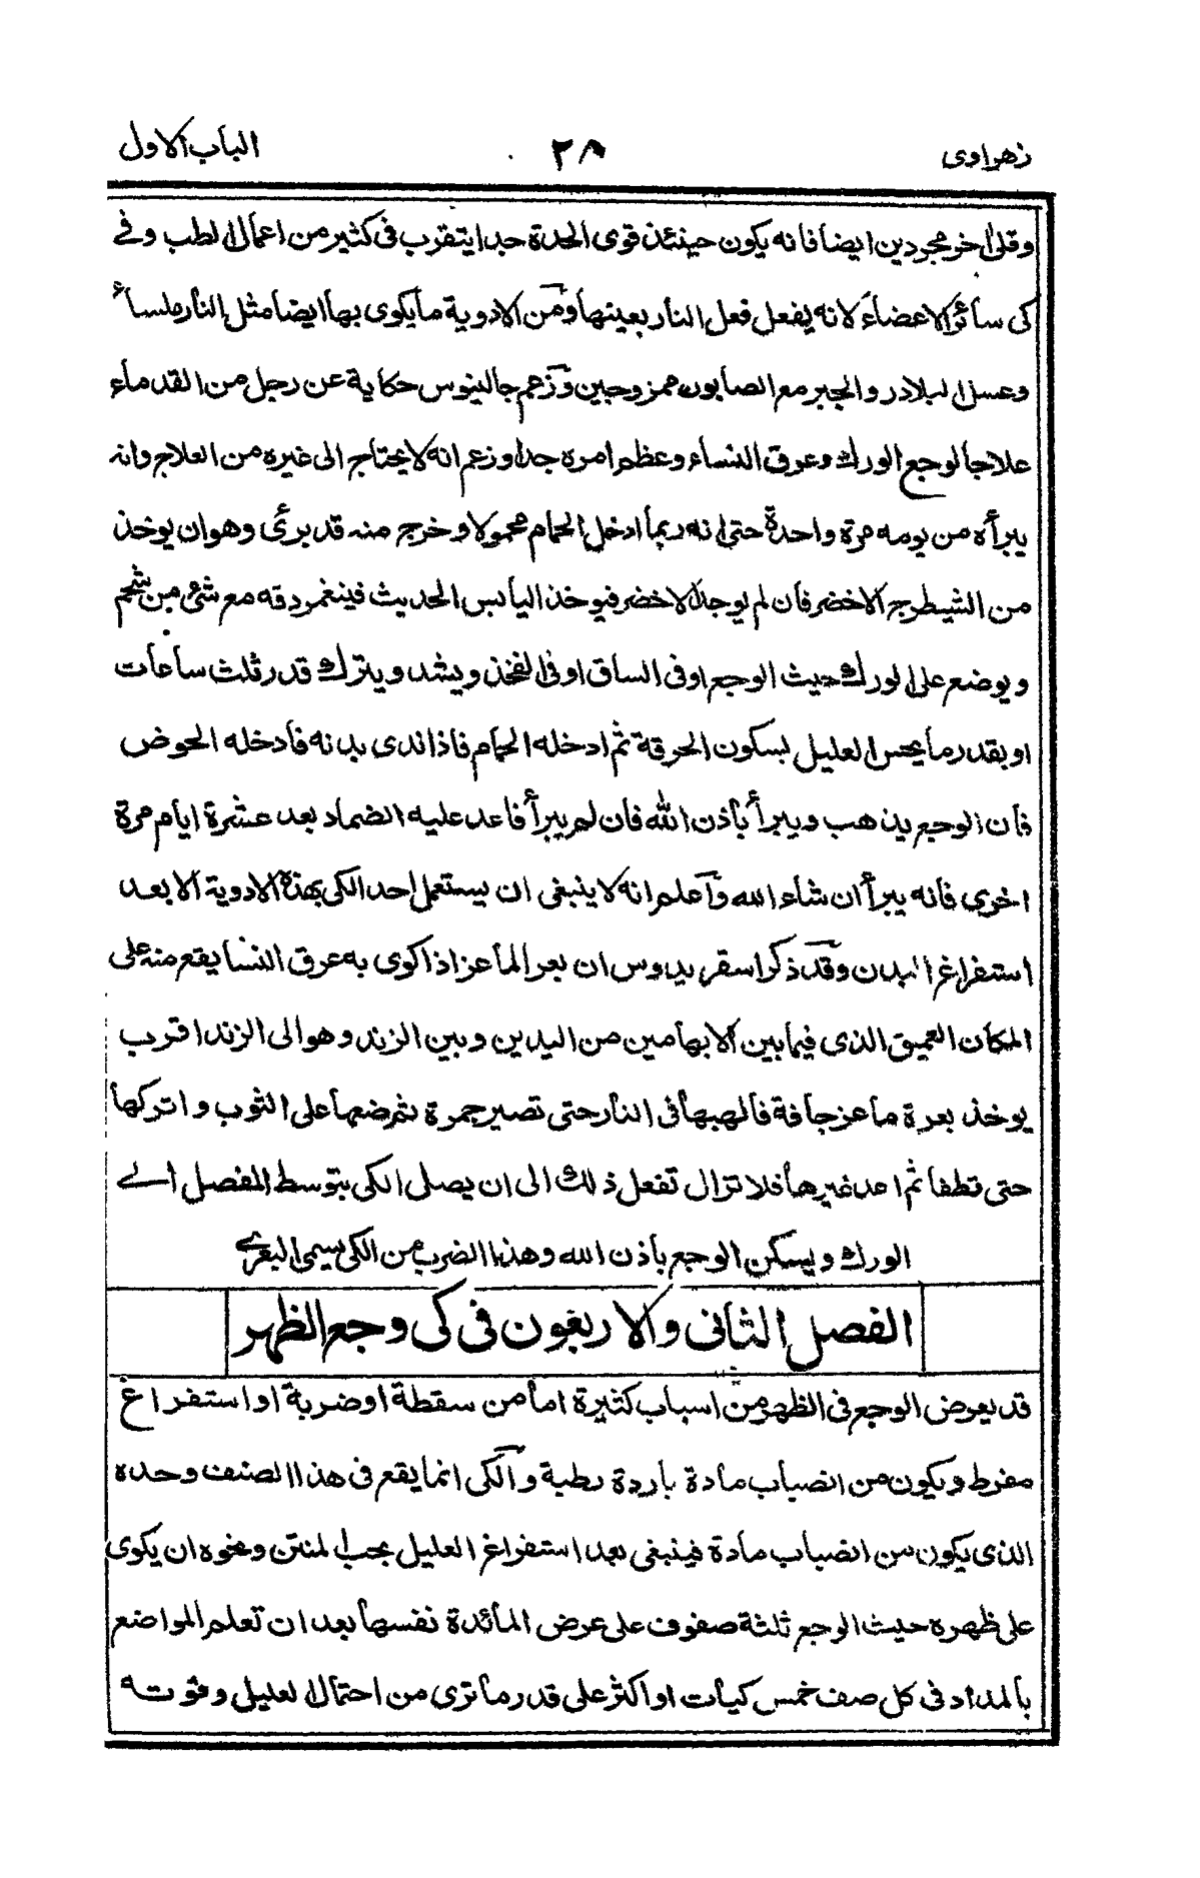 زهراوی ٢٨ الباب الاول
وقلى اخر مجردين ايضا فانه يكون حينئذ قوى الحدة جدا يتقرب فى كثير من اعمال الطب وفے
كى سائر الاعضاء لانه يفعل فعل النار بعينها ومن الادوية ما يكوى بها ايضا مثل النار ملسا
وعسل البلادر والجير مع الصابون ممزوجين وزعم جالينوس حكاية عن رجل من القدماء
علاجا لوجع الورك وعرق النساء وعظم امره جدا وزعم انه لا يحتاج الى غيره من العلاج وانه
يبرأه من يومه مرة واحدة حتى انه ربما ادخل الحمام محمولا وخرج منه قد برئ وهو ان يوخذ
من الشيطرج الاخضر فان لم يوجد الاخضر فيوخذ اليابس الحديث فينغمر دقه مع شئ من شحم
ويوضع على الورك حيث الوجع او فى الساق او فى الفخذ ويشد ويترك قدر ثلث ساعات
او بقدر ما يحس العليل بسكون الحرقة ثم ادخله الحمام فاذا ندى بدنه فادخله الحوض
فان الوجع يذهب ويبرأ باذن الله فان لم يبرأ فاعد عليه الضماد بعد عشرة ايام مرة
اخرى فانه يبرأ ان شاء الله واعلم انه لا ينبغى ان يستعمل احد الكى بهذه الادوية الا بعد
استفراغ البدن وقد ذكر اسقريدوس ان بعر الماعز اذا كوى به عرق النسا يقع منه على
المكان العميق الذى فيما بين الابهامين من اليدين وبين الزند وهو الى الزند اقرب
يوخذ بعرة ماعز جافة فالهبها فى النار حتى تصير جمرة ثم ضعها على الثوب واتركها
حتى تطفا ثم اعد غيرها فلا تزال تفعل ذلك الى ان يصلى الكى بتوسط المفصل الے
الورك ويسكن الوجع باذن الله وهذا الضرب من الكى يسمى البعرے
الفصل الثانى والاربعون فى كى وجع الظهر
قد يعرض الوجع فى الظهر من اسباب كثيرة اما من سقطة او ضربة او استفراغ
مفرط ويكون من انصباب مادة باردة رطبة والكى انما يقع فى هذا الصنف وحده
الذى يكون من انصباب مادة فينبغى بعد استفراغ العليل بحب المنتن ونحوه ان يكوى
على ظهره حيث الوجع ثلثة صفوف على عرض المائدة نفسها بعد ان تعلم المواضع
بالمداد فى كل صف خمس كيات او اكثر على قدر ما ترى من احتمال العليل وقوته